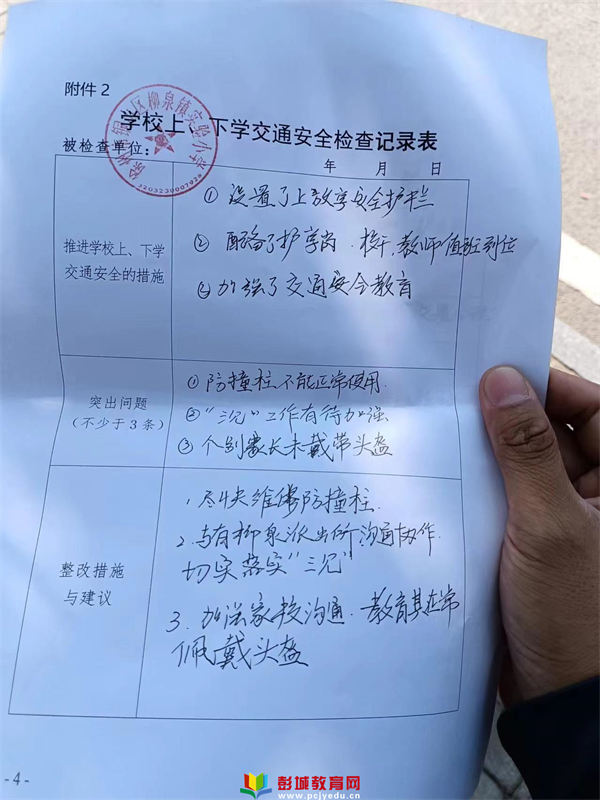 附件2
学校上、下学交通安全检查记录表
被检查单位:
年 月 日
3203230007928
推进学校上、下学
交通安全的措施
① 设置了上放学安全护栏
② 配备了护学岗、校干,教师值班到位
③ 加强了交通安全教育
突出问题
(不少于3条)
① 防撞柱不能正常使用.
② "三见"工作有待加强
③ 个别家长未戴带头盔
整改措施
与建议
1. 尽快维修防撞柱.
2. 与有柳泉派出所沟通协作.
切实落实"三见"
3. 加强家校沟通.教育其正常
佩戴头盔
- 4 -
彭城教育网
www.pcjyedu.cn